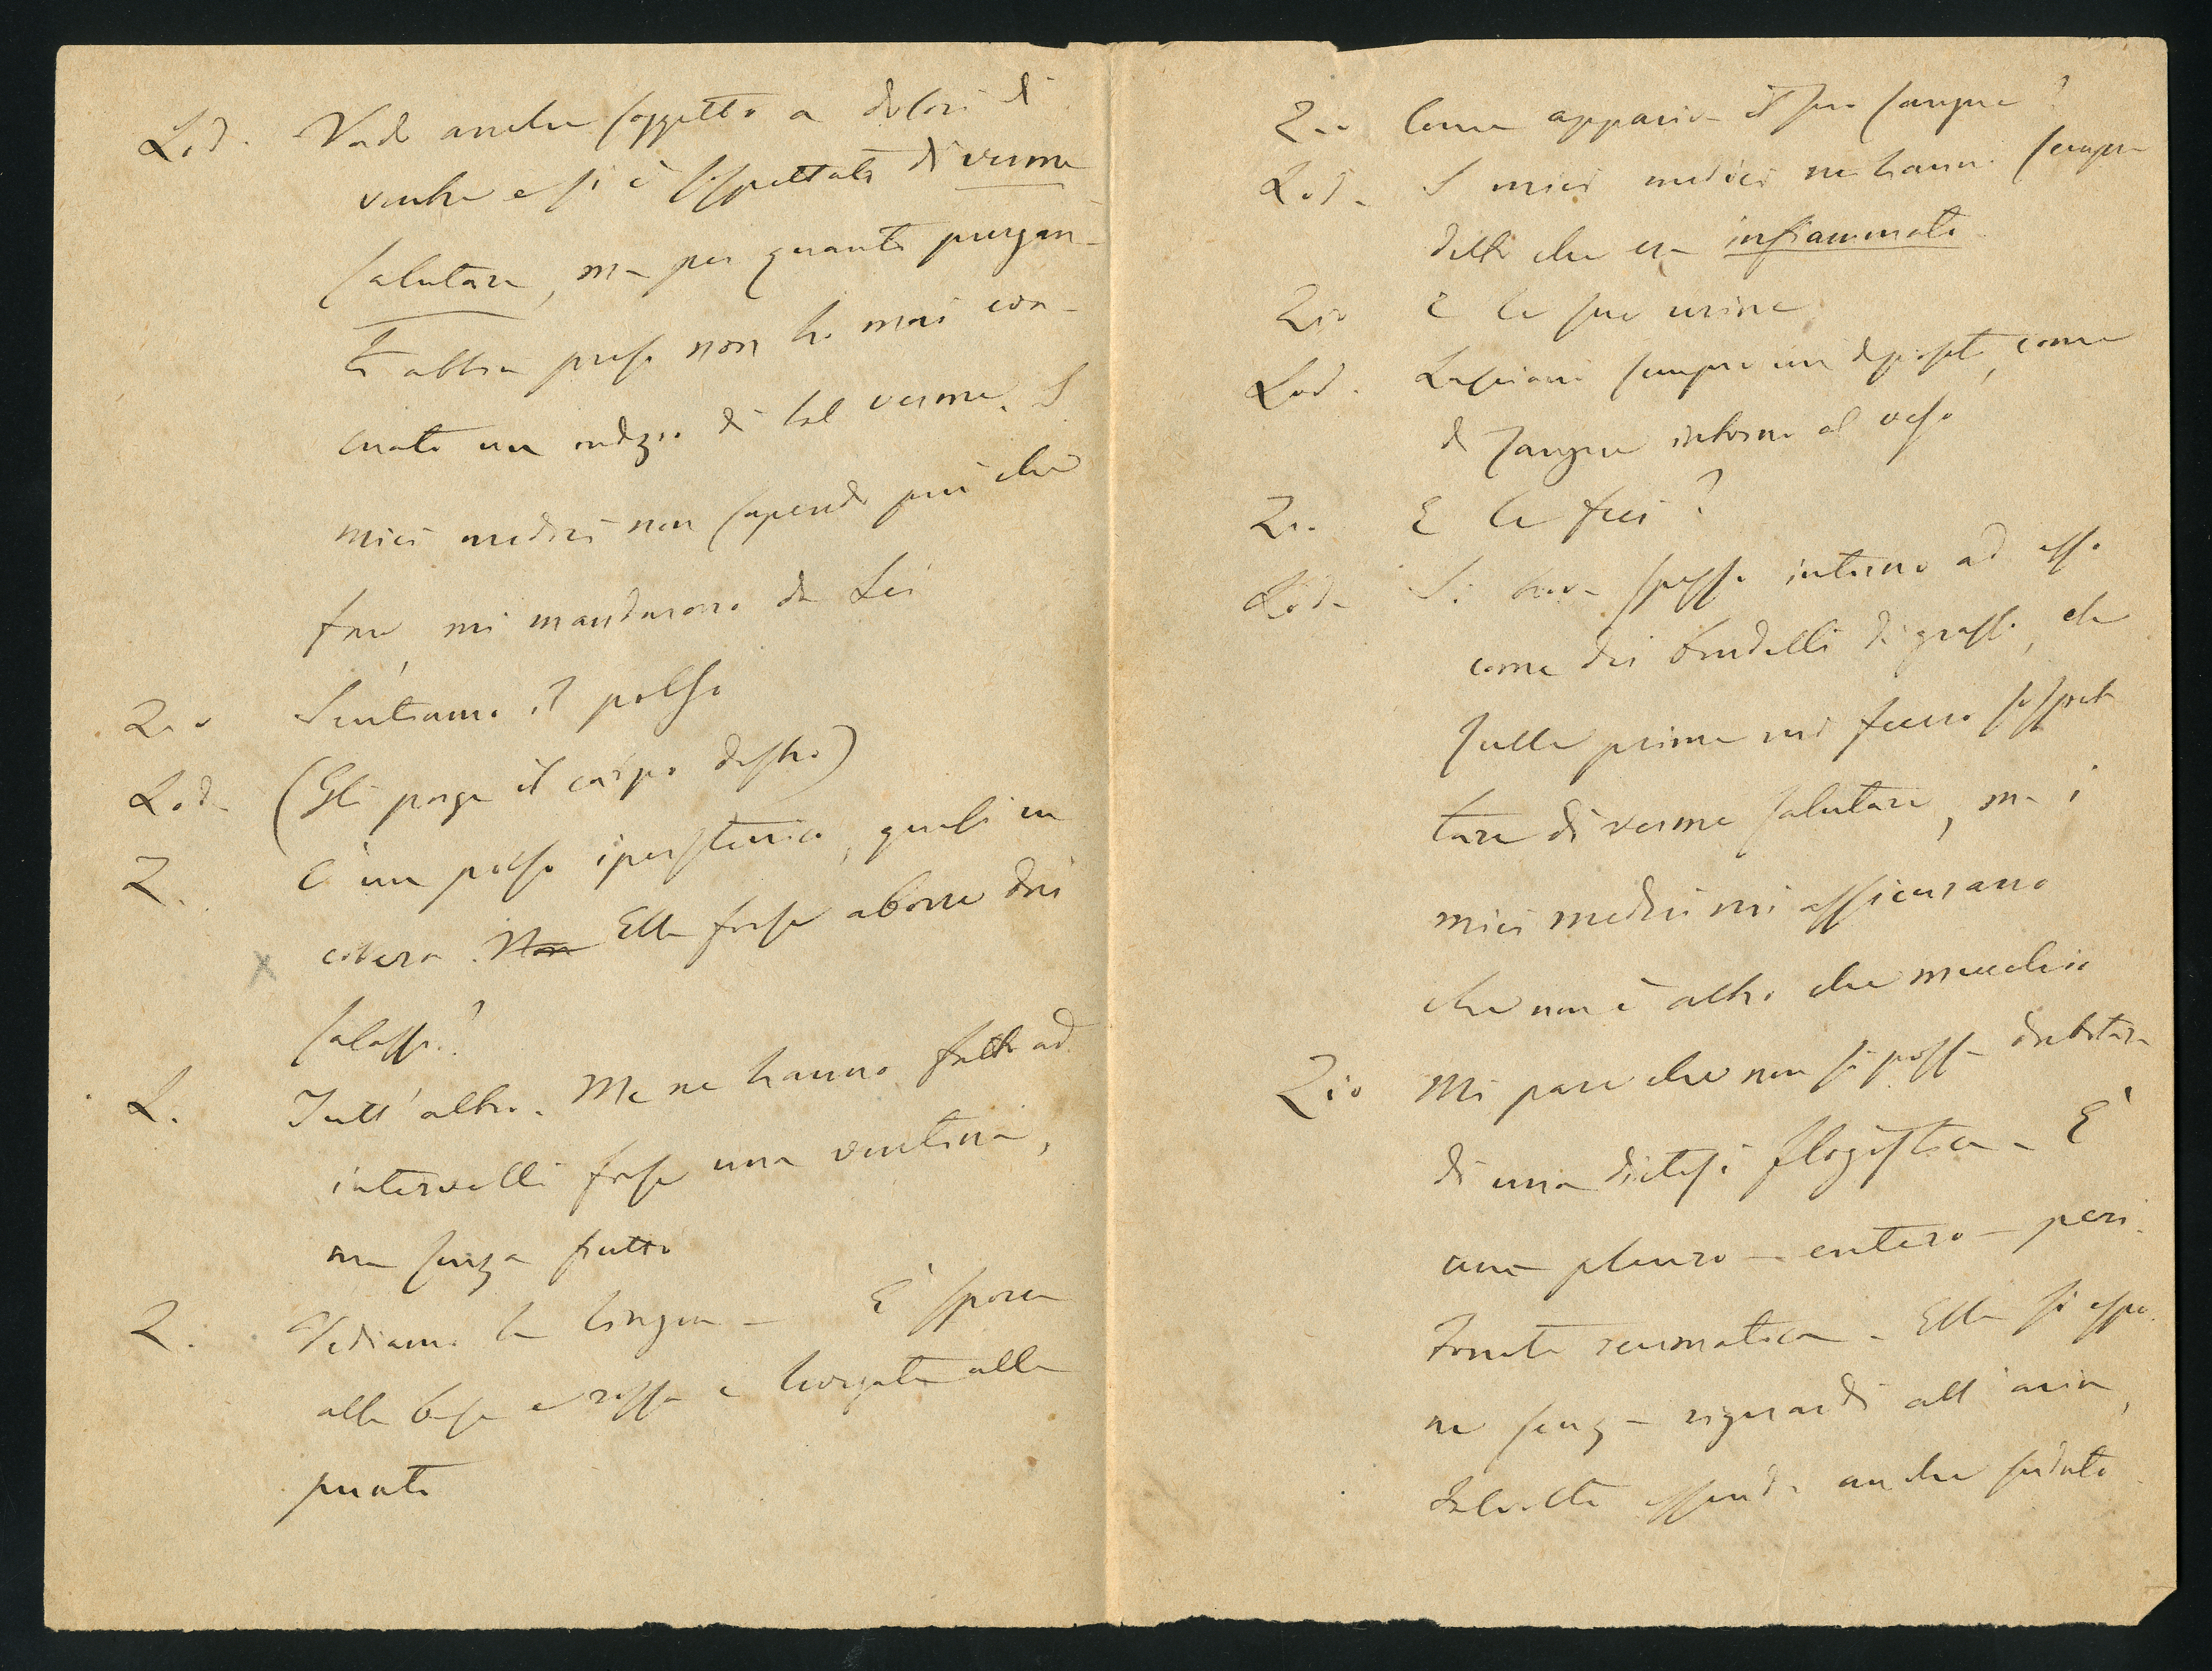 Lod. Vado anche soggetto a dolori di
ventre e si è sospettato di verme
salutare, ma per quanti purgan-
ti abbia preso non ho mai eva-
cuato un indizio di tal verme. I
miei medici non sapendo più che
fare, mi mandarono da Lei
Zio Sentiamo il polso
Lod. (Gli porge il carpo destro)
Z. È un polso iperstenico, quasi in
collera. Non Ella forse aborre dai
salassi?
L. Tutt'altro. Me ne hanno fatto ad
intervalli forse una ventina,
ma senza frutto
Z. Vediamo la lingua – È sporca
alla base e rossa e levigata alla
punta
Zio Come appariva il suo sangue?
Lod. I miei medici ne hanno sempre
detto che era infiammato
Zio E le sue urine
Lod. Lasciano sempre un deposito, come
di sangue intorno al vaso
Zio E le feci?
Lod. Si trova spesso intorno ad esse
come dei brudelli di grasso, che
sulle prime mi fecero sospet
tare di verme salutare, ma i
miei medici mi assicurano
che non è altro che mucchio
Zio Mi pare che non si possa dubitare
di una diatesi flogistica – È
una pleuro – entero – peri
tonite reumatica – Ella si espo
ne senza riguardi all'aria,
talvolta essendo anche sudato